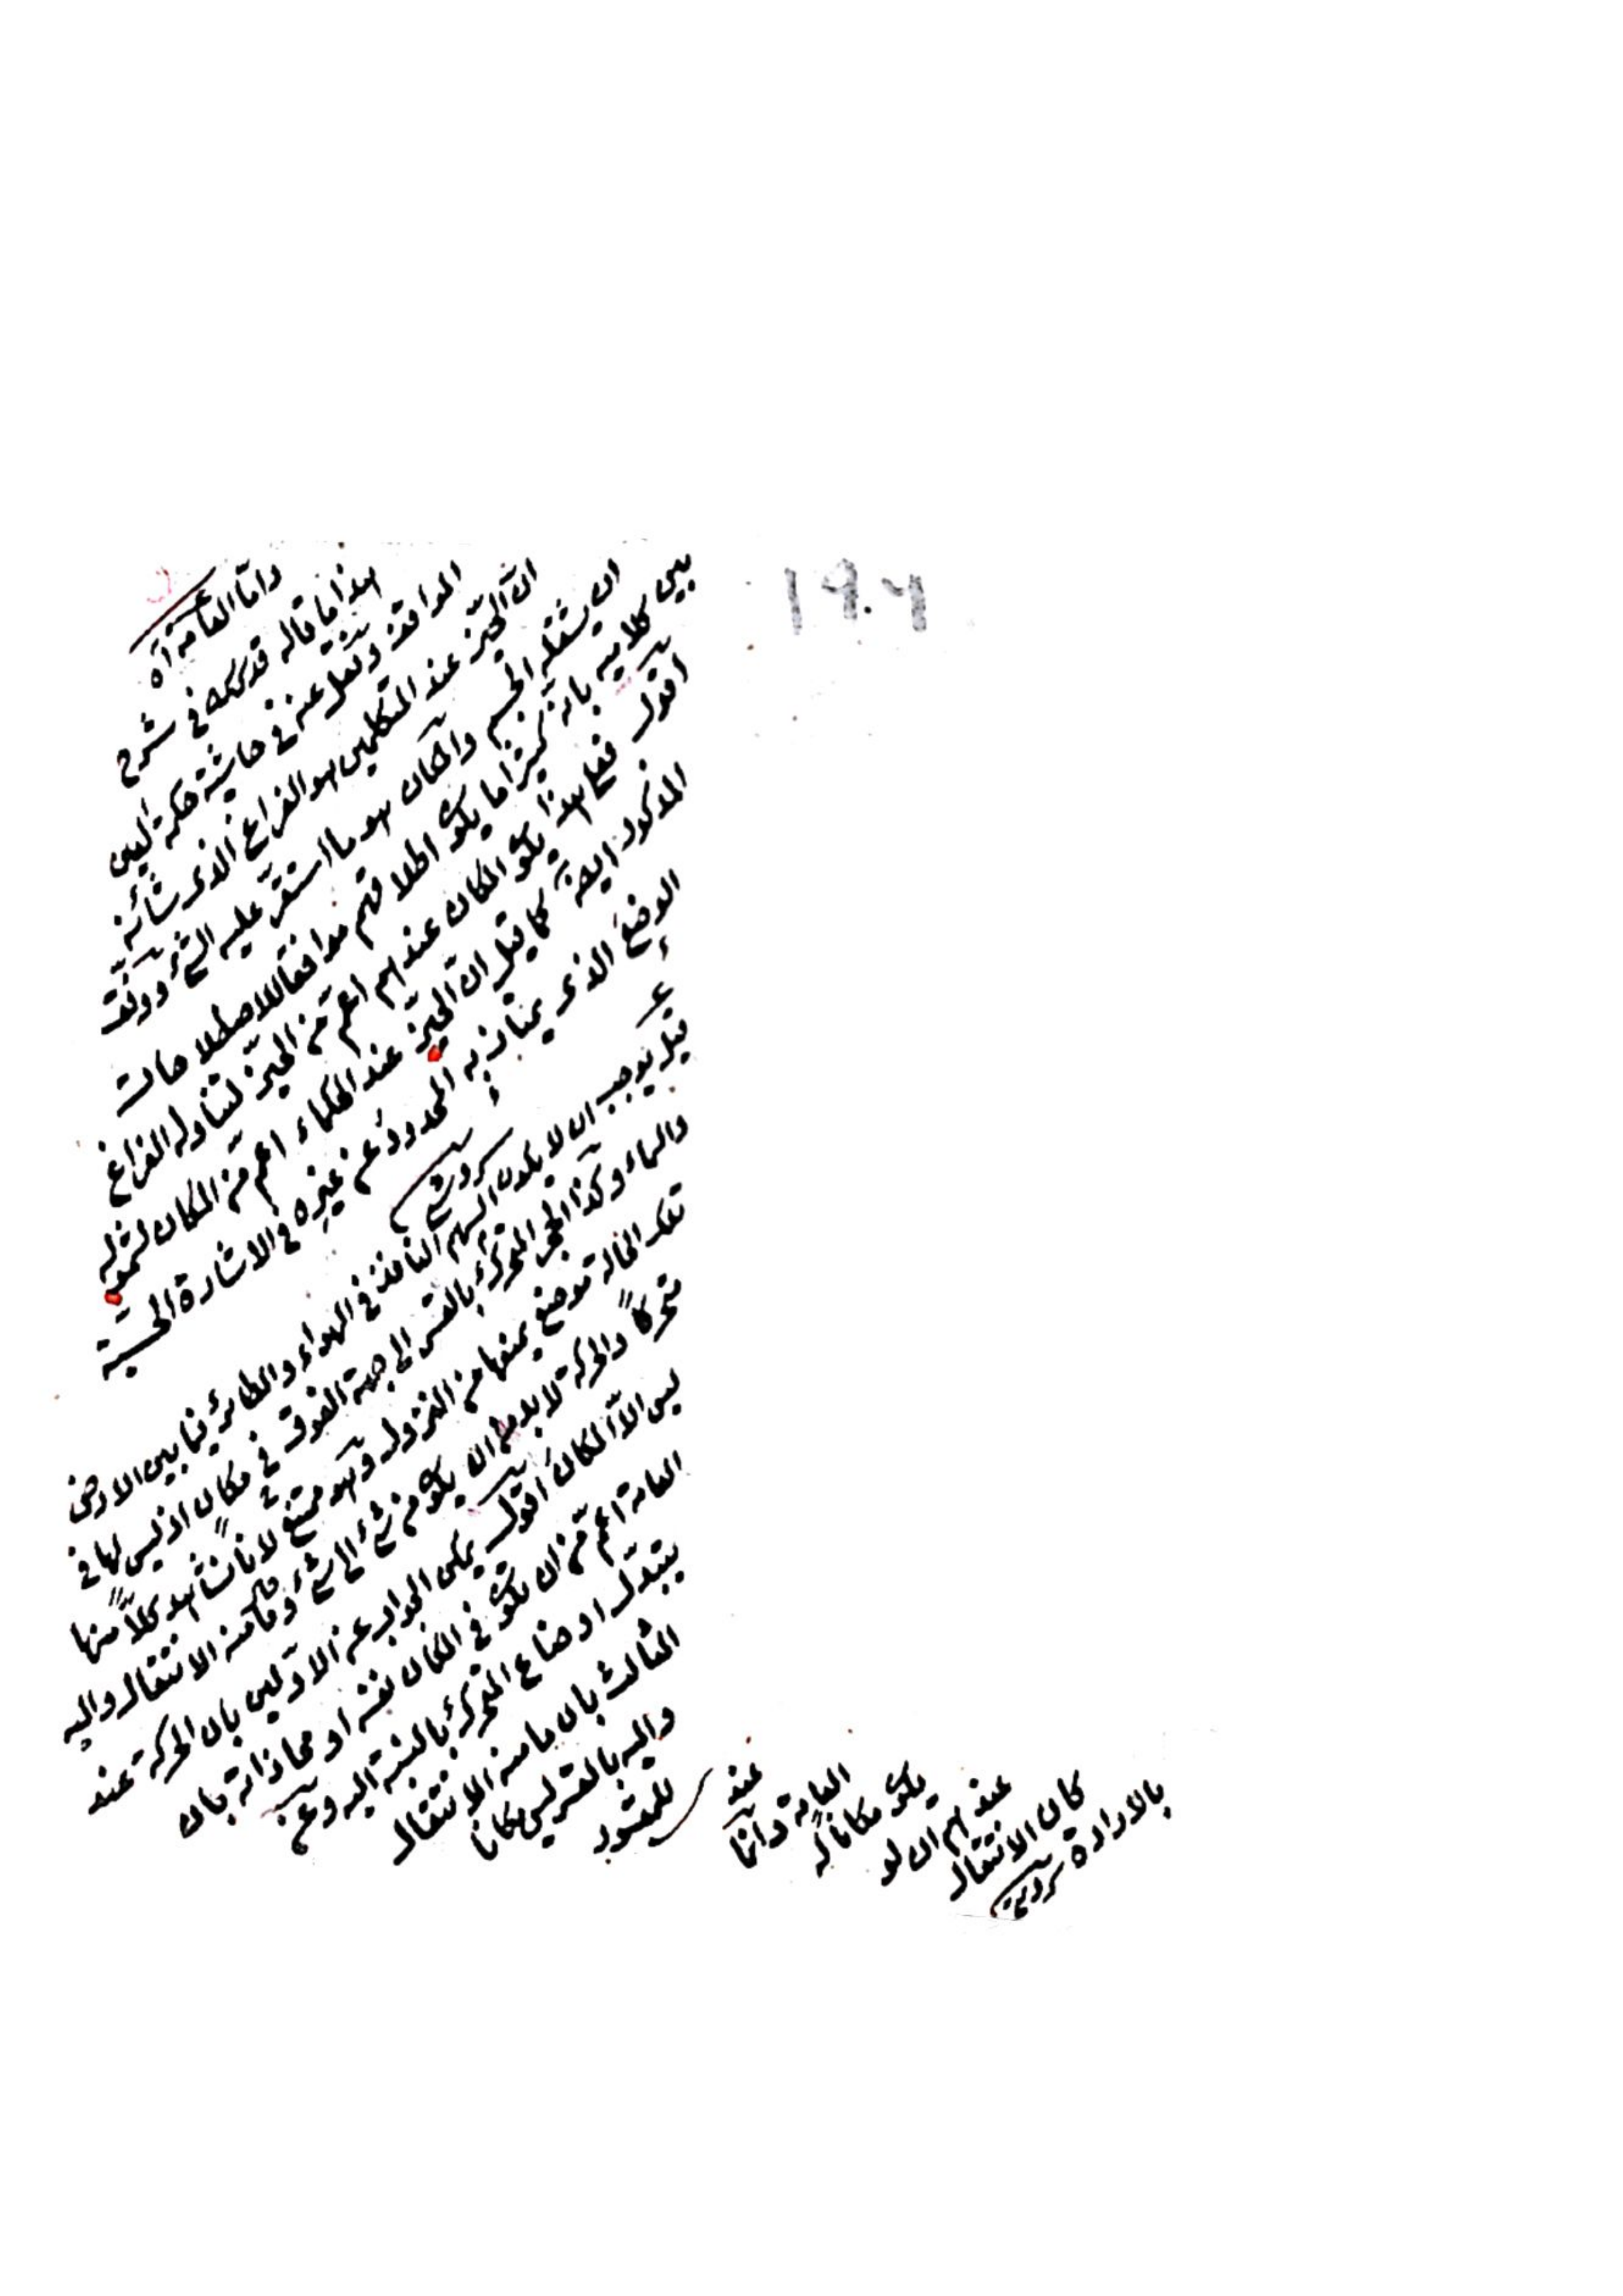 ١٩٠٦
واما العامة آه
هذا ما قاله قدس سره في شرح
المواقف ونقل عنه في حاشية حكمة العين
ان الحيز عند المتكلمين هو الفراغ الذي شأنه
ان يشغله الجسم والمكان هو ما استقر عليه الشئ ووفق
بين كلاميه بانه كثيرا ما يكون اطلاقهم موافقا للاصطلاحات
اقول فعلى هذا يكون المكان عندهم اعم من الحيز لتناوله الفراغ
المذكور ايضا كما قيل ان الحيز عند الحكماء اعم من المكان لشموله
الوضع الذي يمتاز به المحدود عن غيره في الاشارة الحسية
ع
قيل يوجب ان لا يكون السهم النافذ في الهواء والطائر فيما بين الارض
والسماء وكذا الحجر المتحرك بالقسر الى جهة الفوق في مكان اذ ليس لها في
تلك الحالة موضع يمنعها من النزول وهو ممتنع لانا نشاهد كلا منها
متحركا والحركة لا بد ان يكون من شئ الى شئ وما منه الانتقال واليه
ليس الا المكان اقول يمكن الجواب عن الاولين بان الحركة عند
العامة اعم من ان تكون في المكان نفسه او محاذاته بان
يتبدل اوضاع المتحرك بالنسبة اليه وعن
الثالث بان ما منه الانتقال
واليه بالقسر ليس مكانا
للمقسور
عند
العامة وانما
يكون مكانا له
عندهم ان لو
كان الانتقال
بالارادة